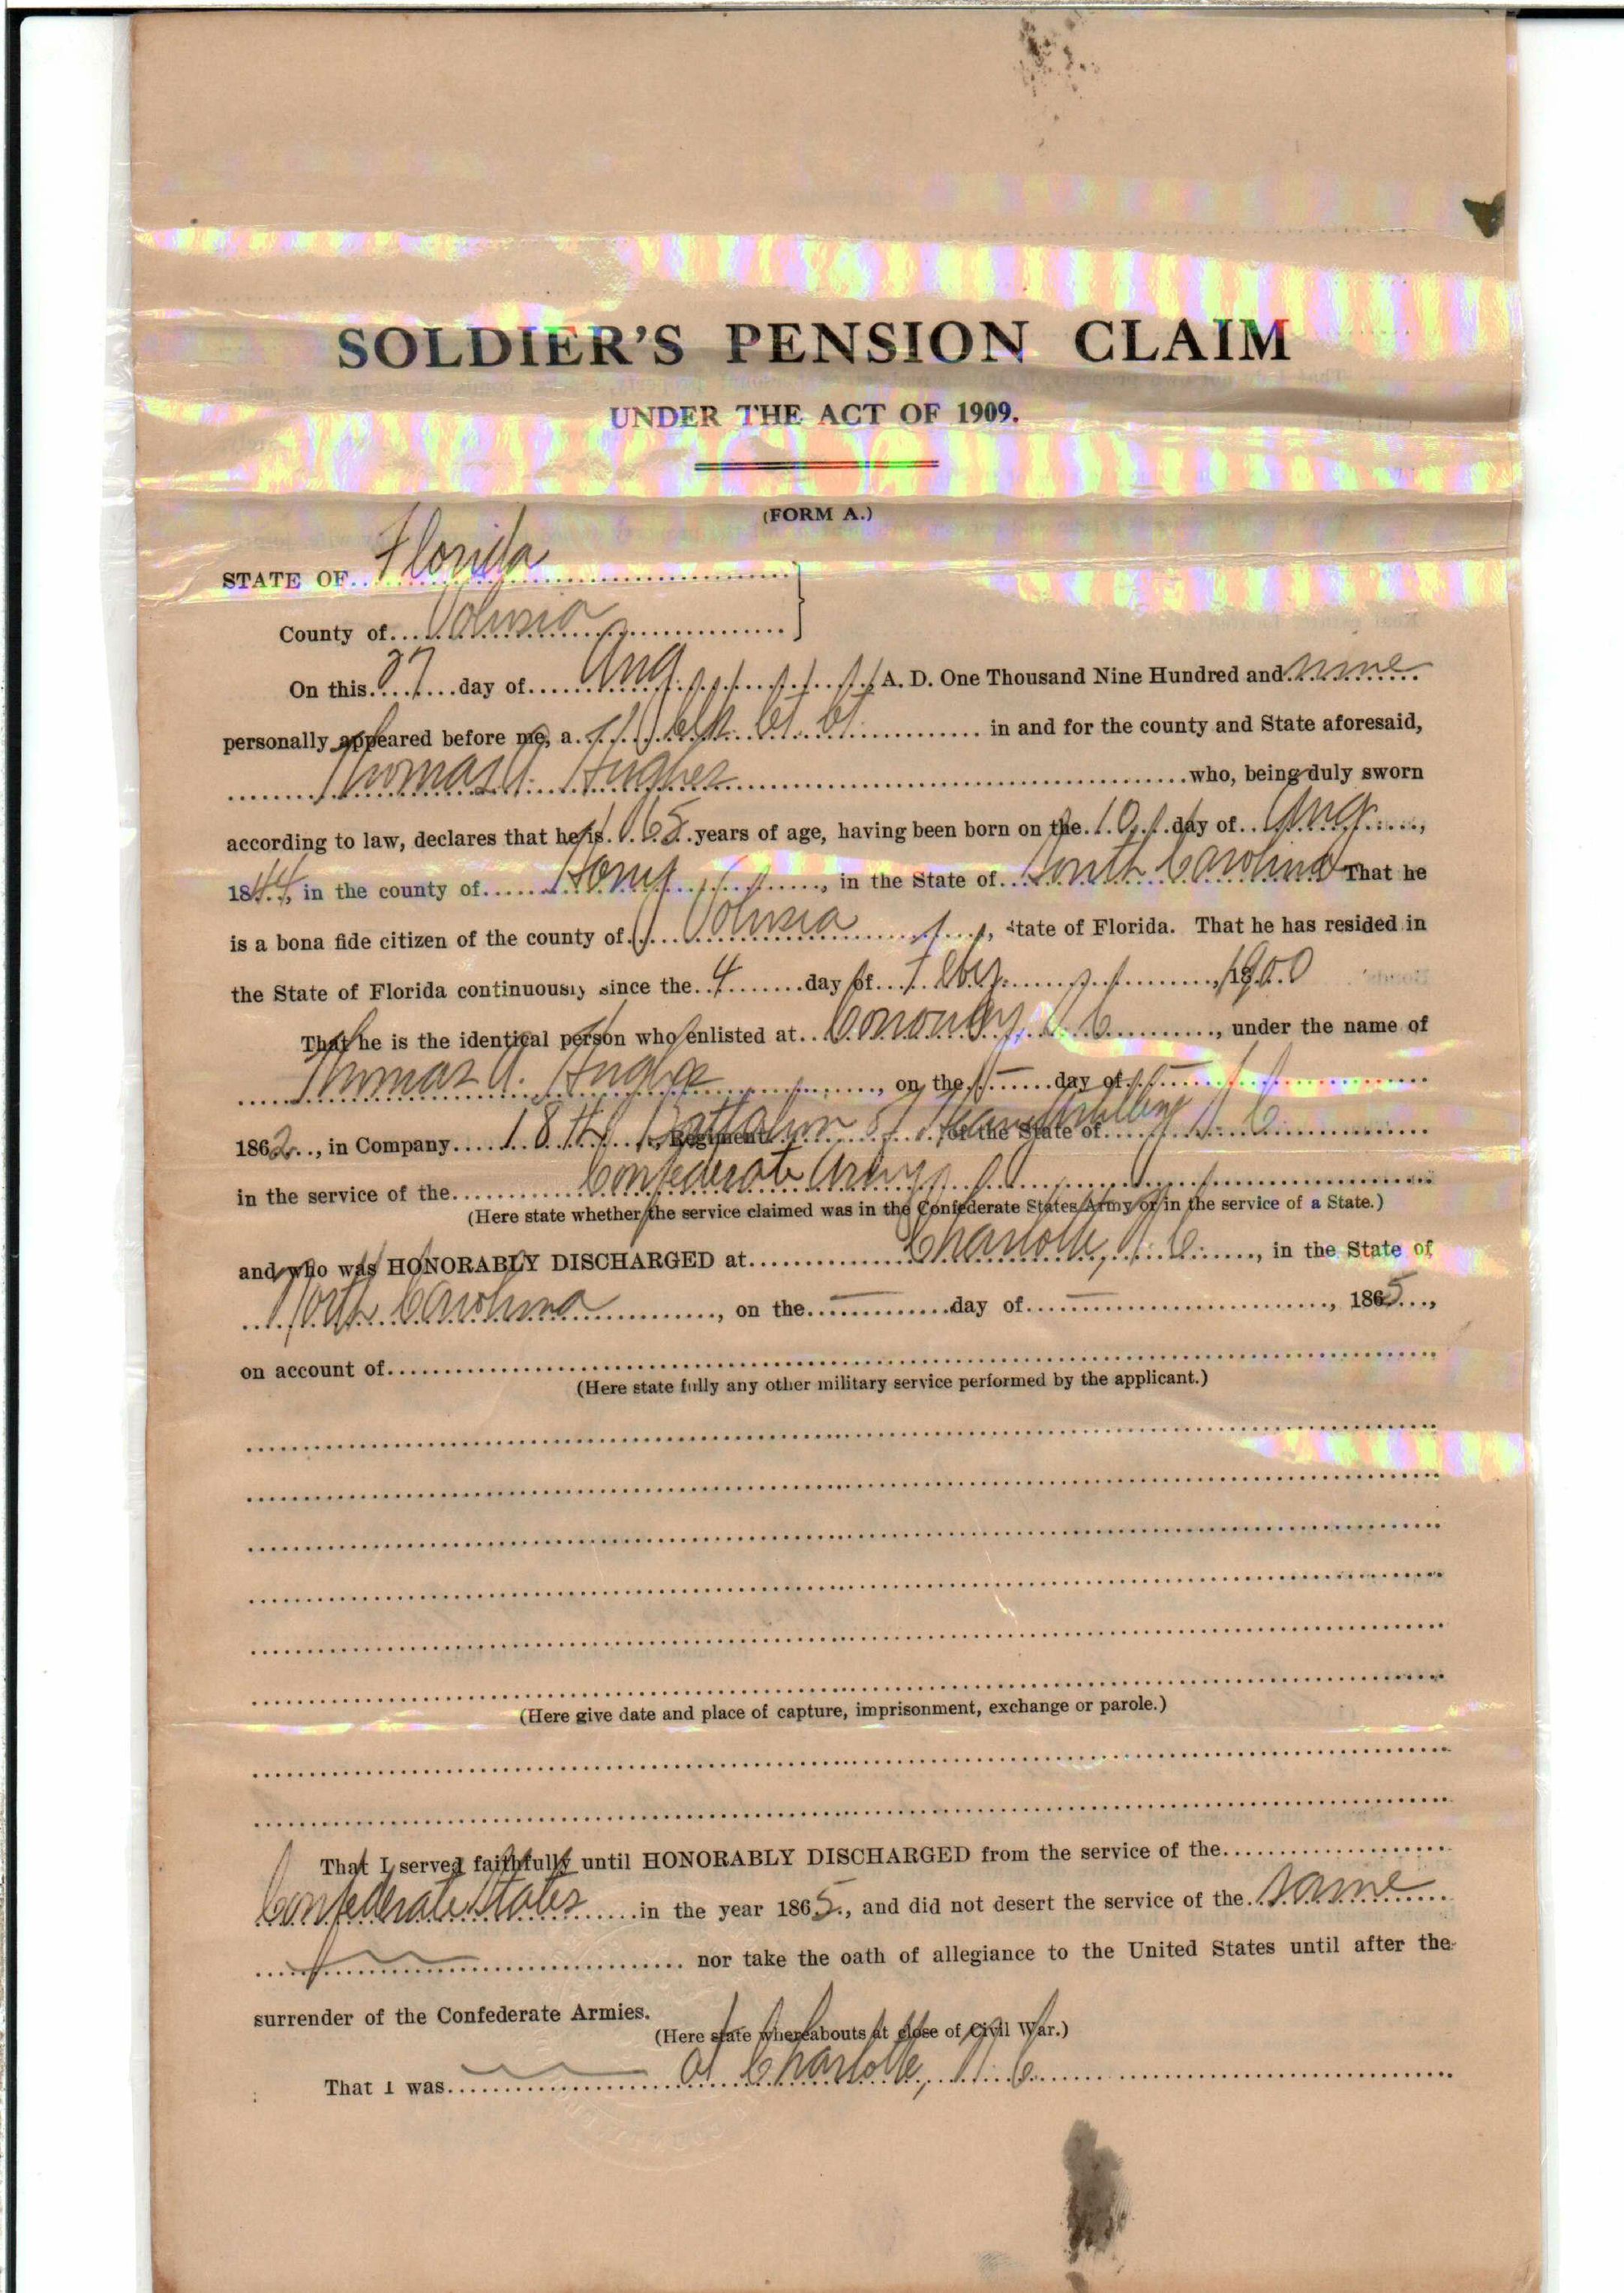 SOLDIER'S PENSION CLAIM
UNDER THE ACT OF 1909.
(FORM A.)
STATE OF Florida
County of Volusia
On this 27 day of Aug A. D. One Thousand Nine Hundred and nine
personally appeared before me, a Clk Ct Ct in and for the county and State aforesaid,
Thomas A. Hughes who, being duly sworn
according to law, declares that he is 65 years of age, having been born on the 10 day of Aug,
1844, in the county of Horry, in the State of South Carolina That he
is a bona fide citizen of the county of Volusia, State of Florida. That he has resided in
the State of Florida continuously since the 4 day of Feby 1900
That he is the identical person who enlisted at N C, under the name of
Thomas A. Hughes, on the — day of —
1862, in Company 18th Battalion Regiment of the State of N C
in the service of the Confederate Army
(Here state whether the service claimed was in the Confederate States Army or in the service of a State.)
and who was HONORABLY DISCHARGED at Charlotte, N. C., in the State of
North Carolina, on the — day of —, 1865,
on account of
(Here state fully any other military service performed by the applicant.)
(Here give date and place of capture, imprisonment, exchange or parole.)
That I served faithfully until HONORABLY DISCHARGED from the service of the
Confederate States in the year 1865, and did not desert the service of the same
nor take the oath of allegiance to the United States until after the
surrender of the Confederate Armies.
(Here state whereabouts at close of Civil War.)
That I was at Charlotte, N. C